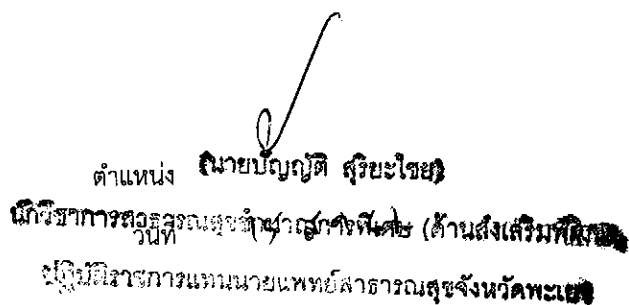 ตำแหน่ง (นายบัญญัติ สุริยะไชย)
นักวิชาการสาธารณสุขชำนาญการพิเศษ (ด้านส่งเสริมพัฒนา)
วันที่
ปฏิบัติราชการแทนนายแพทย์สาธารณสุขจังหวัดพะเยา